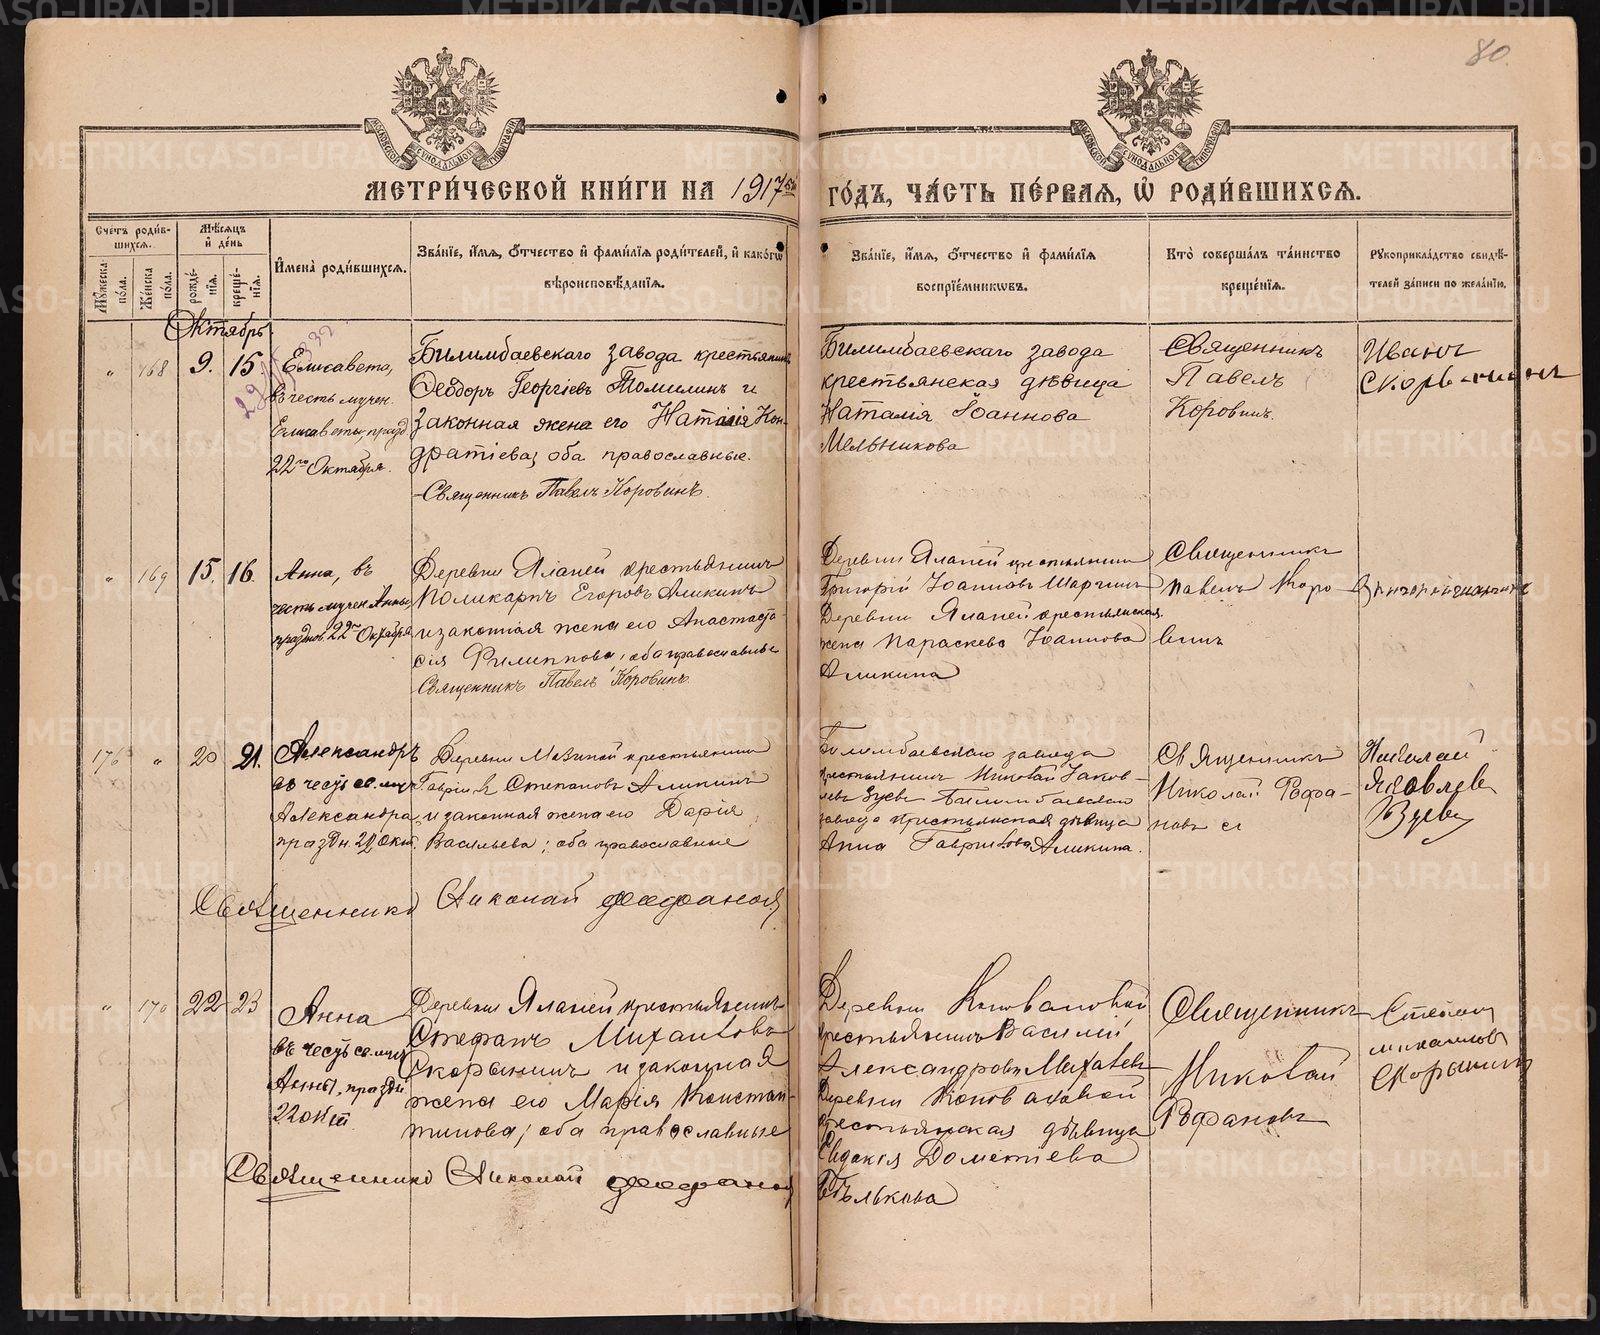 80
МОСКОВСКОЙ СѴНОДАЛЬНОЙ ТИПОГРАФІИ
МОСКОВСКОЙ СѴНОДАЛЬНОЙ ТИПОГРАФІИ
МЕТРИ́ЧЕСКОЙ КНИ́ГИ НА 1917ый
ГО́ДЪ, ЧА́СТЬ ПЕ́РВАЯ, Ѡ РОДИ́ВШИХСЯ.
Сче́тъ роди́в-
шихся.
Мѣ́сяцъ
и́ де́нь
Мꙋ́жеска
по́ла.
Же́нска
по́ла.
рожде́-
нїя.
креще́-
нїя.
И҆мена̀ роди́вшихся.
Зва́нїе, и҆́мя, ѻ҆́тчество и҆ фами́лїя роди́телей, и҆ како́гѡ
вѣроисповѣ́данїя.
Зва́нїе, и҆́мя, ѻ҆́тчество и҆ фами́лїя
воспрїе́мникѡвъ.
Кто̀ соверша́лъ та́инство
креще́нїя.
Рꙋкоприкла́дство свидѣ́-
телей за́писи по жела́нїю.
Октябрь
" 168 9. 15
Елисавета,
въ честь мучен.
Елисаветы, празд
22го Октября.
Билимбаевскаго завода крестьянинъ
Ѳеодоръ Георгіевъ Томилинъ и
законная жена его Наталія Кон-
дратіева; оба православные.
Священникъ Павелъ Коровинъ.
Билимбаевскаго завода
крестьянская дѣвица
Наталія Іоаннова
Мельникова
Священникъ
Павелъ
Коровинъ.
Иванъ
" 169 15. 16.
Анна, въ
честь мучен Анны
праздн. 22го Октября
Деревни Яланей крестьянинъ
Поликарпъ Егоровъ Аликинъ
и законная жена его Анастаса-
сія Филиппова; оба православные
Священникъ Павелъ Коровинъ.
Деревни Яланей крестьянинъ
Григорій Іоанновъ
Деревни Яланей крестьянская
жена Параскева Іоаннова
Аликина
Священникъ
Павелъ Коро-
винъ
176 " 20 21.
Александръ
въ честь св. муч
Александра,
праздн. 22 Окт.
Деревни крестьянинъ
Гавріилъ Степановъ Аликинъ
и законная жена его Дарія
Васильева; оба православные
Священникъ Николай Феофановъ
Билимбаевскаго завода
крестьянинъ Николай Іаков-
левъ Зуевъ Билимбаевскаго
завода крестьянская дѣвица
Анна Гаврилова Аликина.
Священникъ
Николай Феофа-
новъ
Николай
Яковлев
Зуев
" 170 22 23
Анна
въ честь св. муч
Анны, праздн
22 окт
Деревни Яланей крестьянинъ
Стефанъ Михаиловъ
Скорынинъ и законная
жена его Марія Констан-
тинова; оба православные
Священникъ Николай Феофановъ
Деревни Коноваловой
крестьянинъ Василій
Александровъ Михалевъ
Деревни Коноваловой
крестьянская дѣвица
Евдокія Дометіева
Бѣлькова
Священникъ
Николай
Феофановъ
Степан
михаилов
Скорынин
METRIKI.GASO-URAL.RU